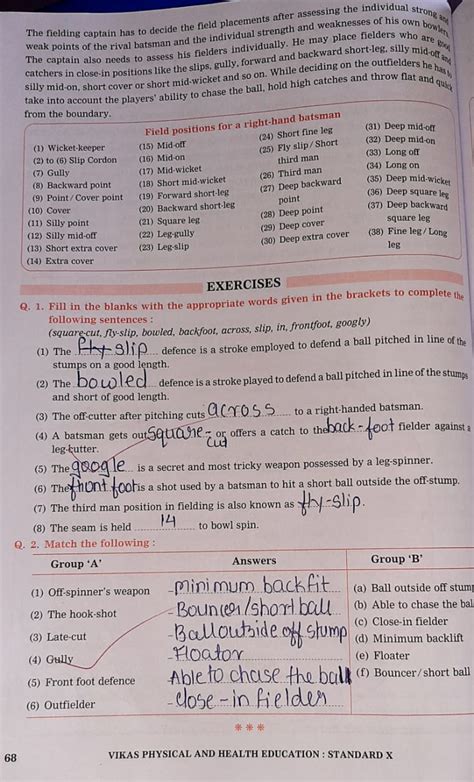 The fielding captain has to decide the field placements after assessing the individual strong and
weak points of the rival batsman and the individual strength and weaknesses of his own bowlers.
The captain also needs to assess his fielders individually. He may place fielders who are good
catchers in close-in positions like the slips, gully, forward and backward short-leg, silly mid-off and
silly mid-on, short cover or short mid-wicket and so on. While deciding on the outfielders he has to
take into account the players' ability to chase the ball, hold high catches and throw flat and quick
from the boundary.
Field positions for a right-hand batsman
(1) Wicket-keeper
(2) to (6) Slip Cordon
(7) Gully
(8) Backward point
(9) Point / Cover point
(10) Cover
(11) Silly point
(12) Silly mid-off
(13) Short extra cover
(14) Extra cover
(15) Mid-off
(16) Mid-on
(17) Mid-wicket
(18) Short mid-wicket
(19) Forward short-leg
(20) Backward short-leg
(21) Square leg
(22) Leg-gully
(23) Leg-slip
(24) Short fine leg
(25) Fly slip / Short
third man
(26) Third man
(27) Deep backward
point
(28) Deep point
(29) Deep cover
(30) Deep extra cover
(31) Deep mid-off
(32) Deep mid-on
(33) Long off
(34) Long on
(35) Deep mid-wicket
(36) Deep square leg
(37) Deep backward
square leg
(38) Fine leg / Long
leg
EXERCISES
Q. 1. Fill in the blanks with the appropriate words given in the brackets to complete the
following sentences :
(square-cut, fly-slip, bowled, backfoot, across, slip, in, frontfoot, googly)
(1) The fly-slip defence is a stroke employed to defend a ball pitched in line of the
stumps on a good length.
(2) The bowled defence is a stroke played to defend a ball pitched in line of the stumps
and short of good length.
(3) The off-cutter after pitching cuts across to a right-handed batsman.
(4) A batsman gets out square-cut or offers a catch to the back-foot fielder against a
leg-cutter.
(5) The google is a secret and most tricky weapon possessed by a leg-spinner.
(6) The front foot is a shot used by a batsman to hit a short ball outside the off-stump.
(7) The third man position in fielding is also known as fly-slip.
(8) The seam is held 14 to bowl spin.
Q. 2. Match the following :
Group 'A' Answers Group 'B'
(1) Off-spinner's weapon - minimum backfit (a) Ball outside off stump
(2) The hook-shot - Bouncer/short ball (b) Able to chase the bal
(3) Late-cut - Ball outside off stump (c) Close-in fielder
(4) Gully - Floator (d) Minimum backlift
(5) Front foot defence Able to chase the ball (e) Floater
(6) Outfielder - close-in fielder (f) Bouncer/short ball
***
68 VIKAS PHYSICAL AND HEALTH EDUCATION : STANDARD X